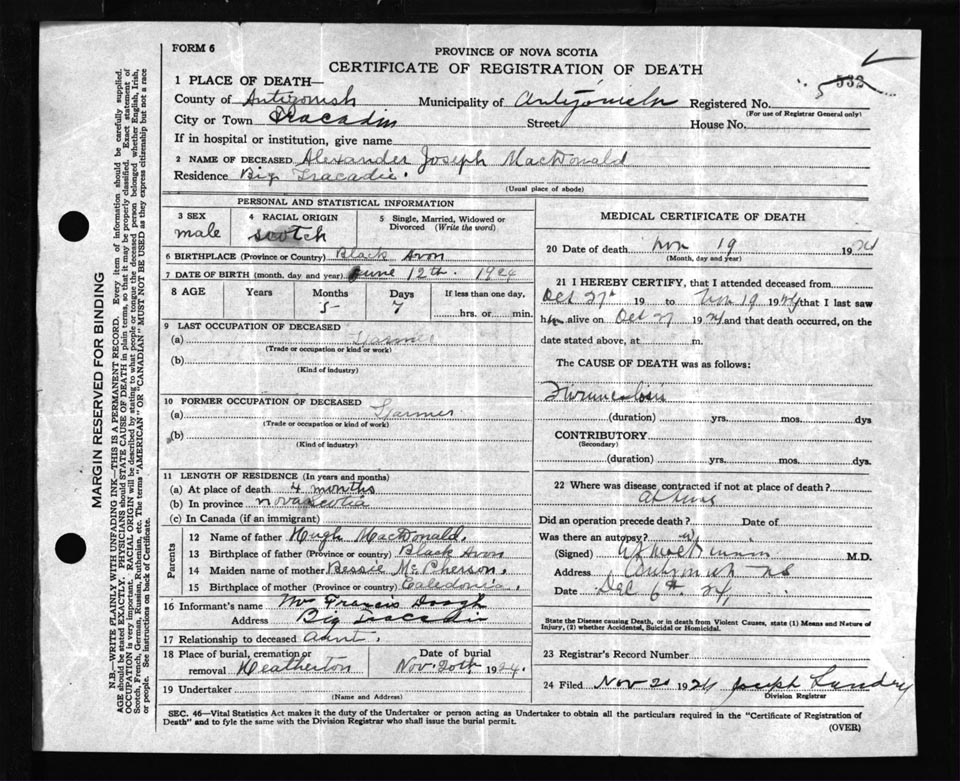 FORM 6
PROVINCE OF NOVA SCOTIA
CERTIFICATE OF REGISTRATION OF DEATH
1 PLACE OF DEATH—
County of Antigonish Municipality of Antigonish Registered No. 533 5
(For use of Registrar General only)
City or Town Tracadie Street House No.
If in hospital or institution, give name
2 NAME OF DECEASED Alexander Joseph MacDonald
Residence Big Tracadie.
(Usual place of abode)
PERSONAL AND STATISTICAL INFORMATION
3 SEX male
4 RACIAL ORIGIN Scotch
5 Single, Married, Widowed or Divorced (Write the word)
6 BIRTHPLACE (Province or Country) Black Avon
7 DATE OF BIRTH (month, day and year) June 12th. 1924
8 AGE Years Months Days If less than one day,
5 7 hrs. or min.
9 LAST OCCUPATION OF DECEASED
(a) Farmer
(Trade or occupation or kind of work)
(b)
(Kind of industry)
10 FORMER OCCUPATION OF DECEASED
(a) Farmer
(Trade or occupation or kind of work)
(b)
(Kind of industry)
11 LENGTH OF RESIDENCE (In years and months)
(a) At place of death 4 months
(b) In province nova scotia
(c) In Canada (if an immigrant)
Parents
12 Name of father Hugh MacDonald.
13 Birthplace of father (Province or country) Black Avon
14 Maiden name of mother Bessie McPherson.
15 Birthplace of mother (Province or country) Caledonia.
16 Informant's name Mrs Francis
Address Big Tracadie
17 Relationship to deceased Aunt.
18 Place of burial, cremation or removal Heatherton
Date of burial Nov. 20th 1924.
19 Undertaker
(Name and Address)
MEDICAL CERTIFICATE OF DEATH
20 Date of death Nov 19 1924
(Month, day and year)
21 I HEREBY CERTIFY, that I attended deceased from
Oct 27th 19 to Nov 19 1924 that I last saw
him alive on Oct 27 1924 and that death occurred, on the
date stated above, at m.
The CAUSE OF DEATH was as follows:
(duration) yrs. mos. dys
CONTRIBUTORY
(Secondary)
(duration) yrs. mos. dys.
22 Where was disease contracted if not at place of death?
at home
Did an operation precede death? Date of
Was there an autopsy? no
(Signed) M.D.
Address Antigonish NS
Date Dec 6th. 24,
State the Disease causing Death, or in death from Violent Causes, state (1) Means and Nature of
Injury, (2) whether Accidental, Suicidal or Homicidal.
23 Registrar's Record Number
24 Filed Nov 20 1924 Joseph Landry
Division Registrar
SEC. 46—Vital Statistics Act makes it the duty of the Undertaker or person acting as Undertaker to obtain all the particulars required in the "Certificate of Registration of
Death" and to fyle the same with the Division Registrar who shall issue the burial permit.
(OVER)
MARGIN RESERVED FOR BINDING
N.B.—WRITE PLAINLY WITH UNFADING INK—THIS IS A PERMANENT RECORD. Every item of information should be carefully supplied.
AGE should be stated EXACTLY. PHYSICIANS should STATE CAUSE OF DEATH in plain terms, so that it may be properly classified. Exact statement of
OCCUPATION is very important. RACIAL ORIGIN will be described by stating to what people or tongue the deceased person belonged whether English, Irish,
Scotch, French, German, Russian, Ruthenian, etc. The terms "AMERICAN" or "CANADIAN" MUST NOT BE USED as they express citizenship but not a race
or people. See instructions on back of Certificate.